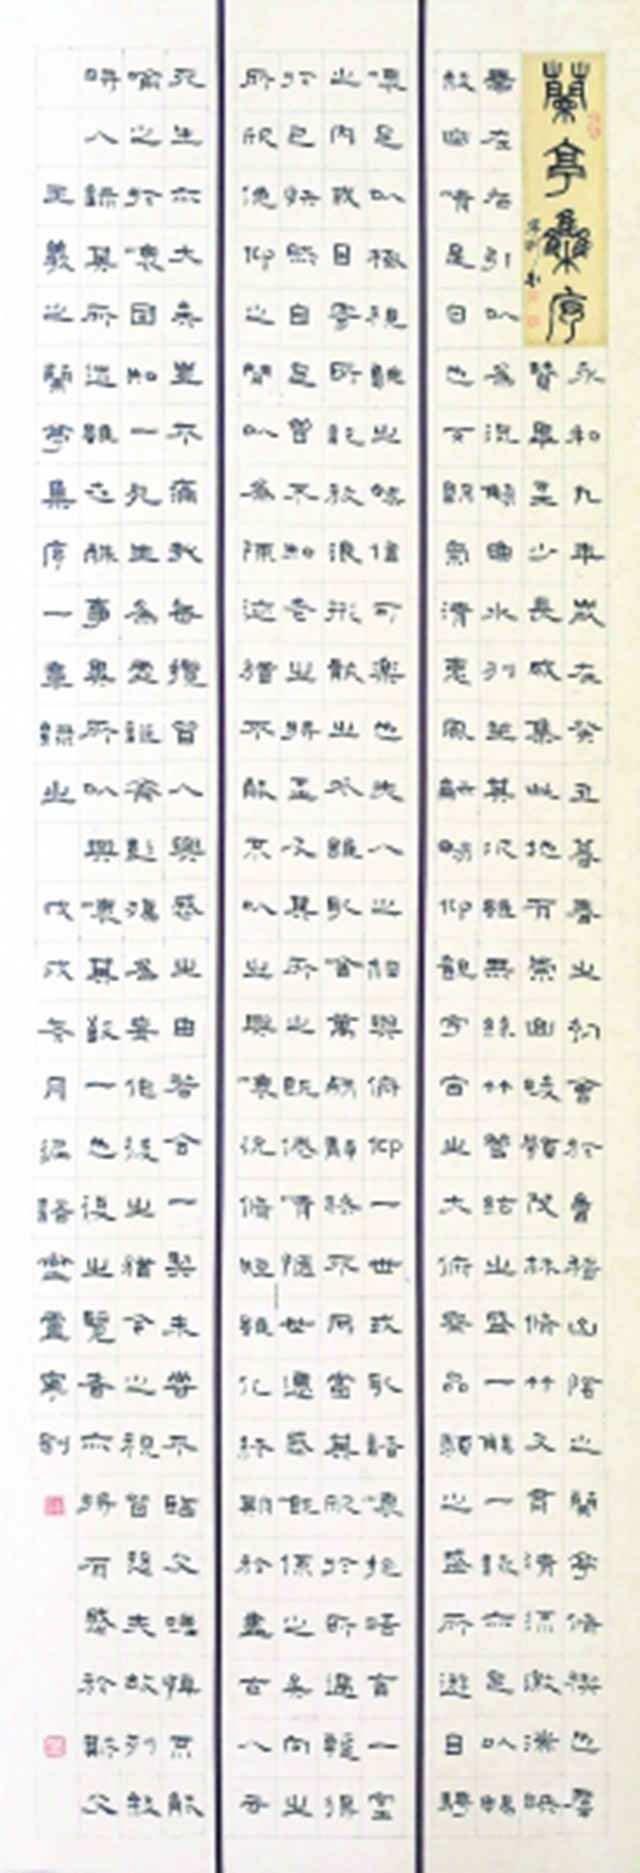 蘭亭集序
永和九年歲在癸丑暮春之初會於會稽山陰之蘭亭脩禊也羣
賢畢至少長咸集此地有崇山峻嶺茂林脩竹又有清流激湍映
帶左右引以為流觴曲水列坐其次雖無絲竹管絃之盛一觴一詠亦是以暢
敘幽情是日也天朗氣清惠風和暢仰觀宇宙之大俯察品類之盛所遊目騁
懷是以極視聽之娛信可樂也夫人之相與俯仰一世或取諸懷抱悟言一室
之內或因寄所託放浪形骸之外雖取舍萬殊靜躁不同當其欣於所遇暫得
於己快然自足曾不知老之將至及其所之既倦情隨世遷感慨係之矣向之
所欣俛仰之間以為陳迹猶不能不以之興懷況脩短雖化終期於盡古人云
死生亦大矣豈不痛哉每攬昔人興感之由若合一契未嘗不臨文嗟悼不能
喻之於懷固知一死生為虛誕齊彭殤為妄作後之猶今之視昔悲夫故列敘
時人錄其所述雖世殊事異所以興懷其致一也後之覽者亦將有感於斯文
王羲之蘭亭集序一章錄之 戊戌冬月